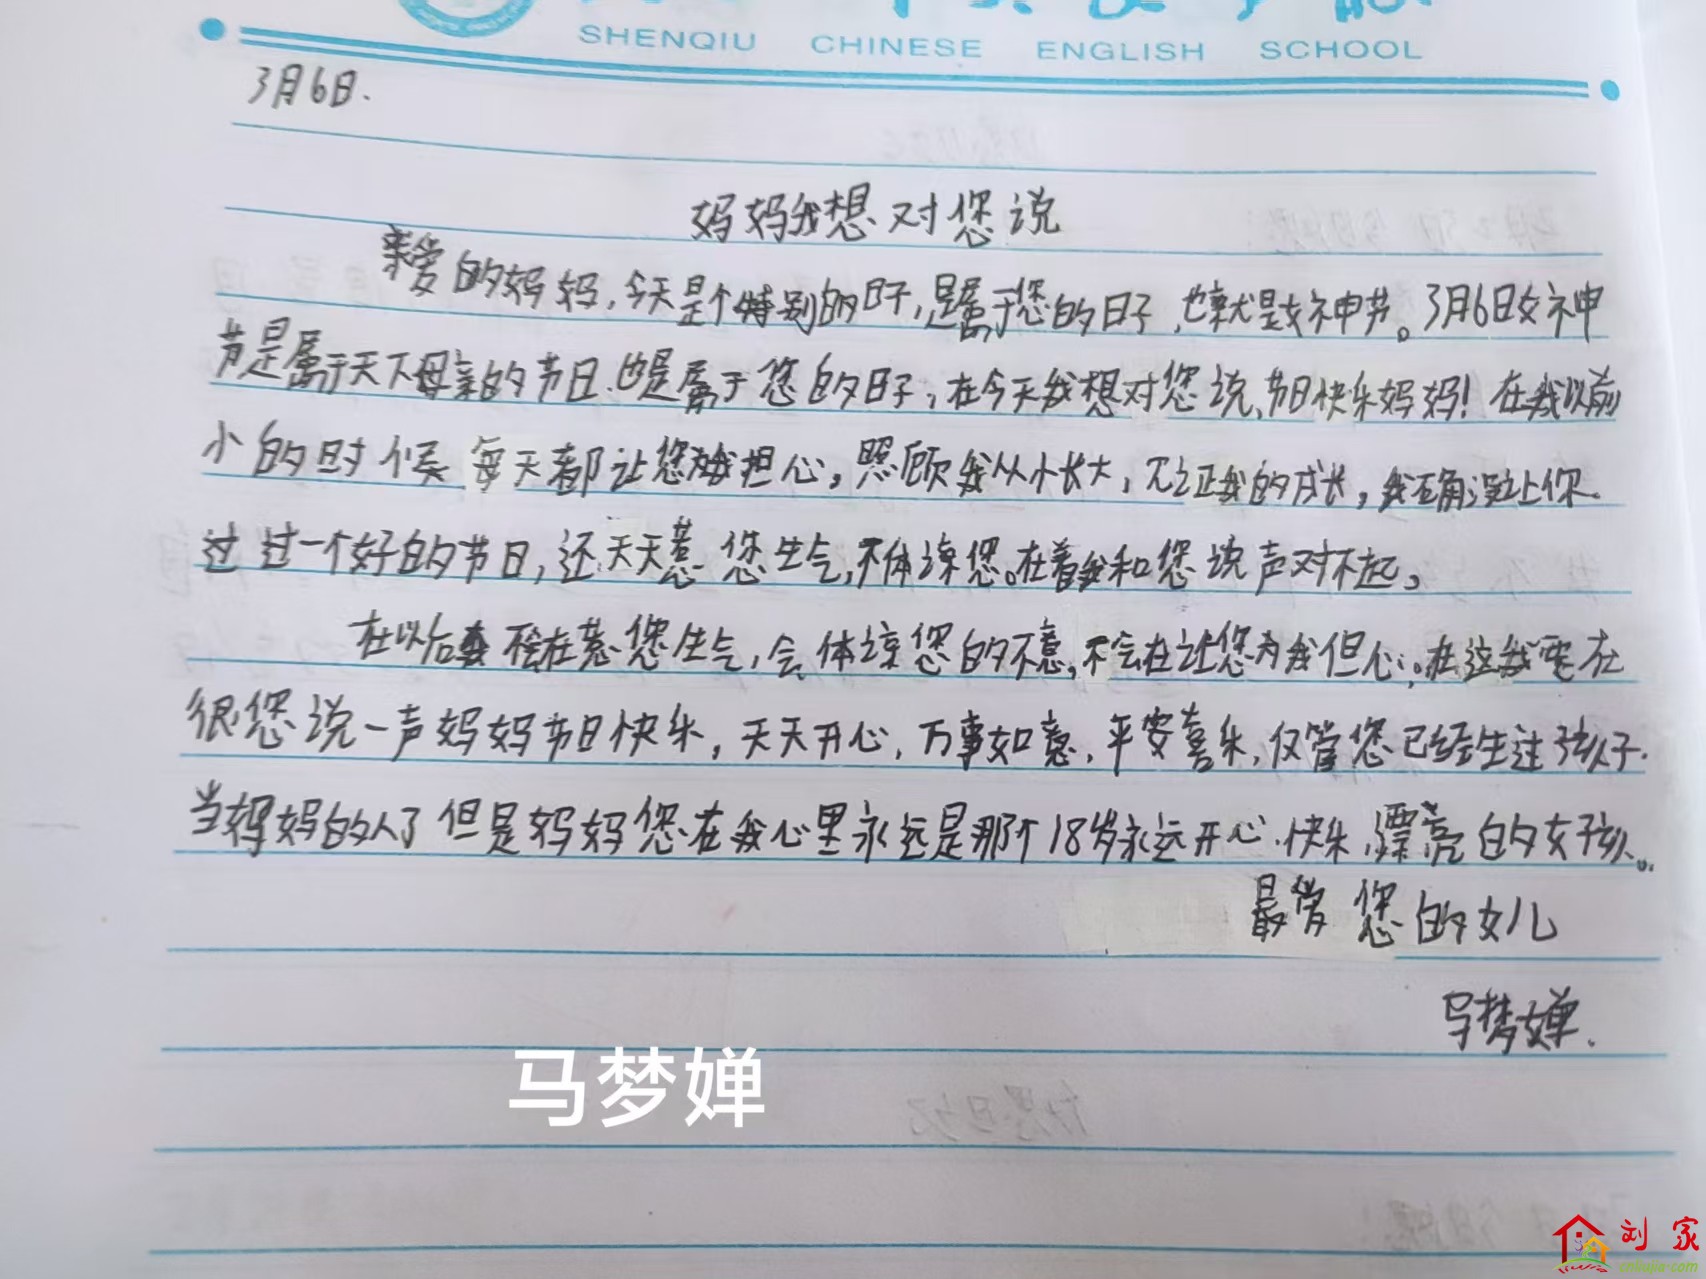 SHENQIU CHINESE ENGLISH SCHOOL
3月6日.
妈妈我想对您说
亲爱的妈妈,今天是个特别的日子,是属于您的日子,也就是女神节。3月6日女神
节是属于天下母亲的节日.也是属于您的日子,在今天我想对您说、节日快乐妈妈!在我以前
小的时候每天都让您为我担心,照顾我从小长大,见证我的成长,我确没让你.
过过一个好的节日,还天天惹您生气,不体谅您。在着我和您说声对不起。
在以后不会在惹您生气,会体谅您的不意,不会在让您为我但心。在这我要在
很您说一声妈妈节日快乐,天天开心,万事如意,平安喜乐,仅管您已经生过孩子.
当妈妈的人了但是妈妈您在我心里永远是那个18岁永远开心.快乐、漂亮的女孩。
最爱您的女儿
马梦婵.
马梦婵
刘家
cnliujia.com